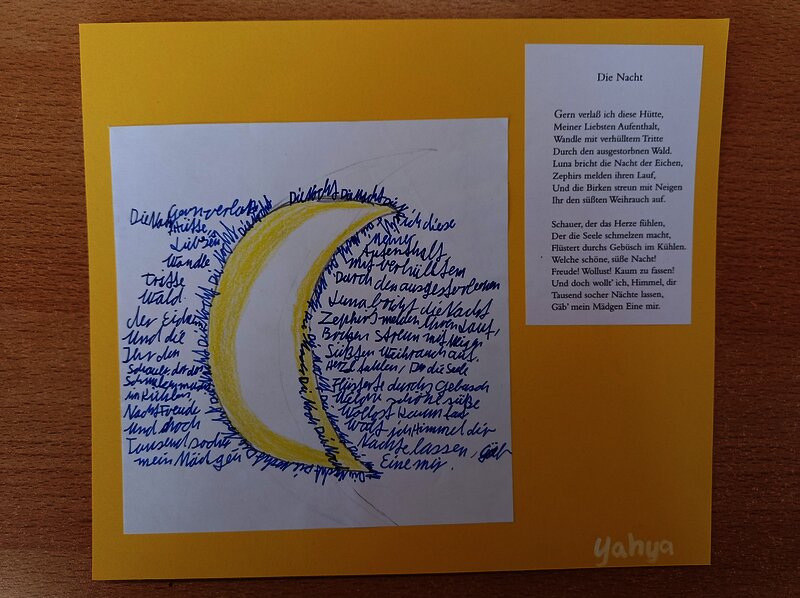 Die Nacht Die Nacht Die
Die Nacht Gern verlaß ich diese
Hütte, meiner
Liebsten Aufenthalt
Wandle mit verhülltem
tritte Durch den ausgestorbenen
Wald. Luna bricht die Nacht
der Eichen Zephirs melden ihren Lauf,
und die Birken streun mit Neigen
Ihr den Süßten Weihrauch auf.
Schauer, der das Herze fühlen, Der die Seele
Schmelzen macht Flüstert durchs Gebüsch
im Kühlen. Welche schöne süße
Nacht Freude Wollust Kaum
und doch Wollt ich Himmel dir
Tausend socher Nächte lassen, Gäb
mein Mädgen Eine mir.
Die Nacht
Gern verlaß ich diese Hütte,
Meiner Liebsten Aufenthalt,
Wandle mit verhülltem Tritte
Durch den ausgestorbnen Wald.
Luna bricht die Nacht der Eichen,
Zephirs melden ihren Lauf,
Und die Birken streun mit Neigen
Ihr den süßten Weihrauch auf.
Schauer, der das Herze fühlen,
Der die Seele schmelzen macht,
Flüstert durchs Gebüsch im Kühlen.
Welche schöne, süße Nacht!
Freude! Wollust! Kaum zu fassen!
Und doch wollt' ich, Himmel, dir
Tausend socher Nächte lassen,
Gäb' mein Mädgen Eine mir.
yahya